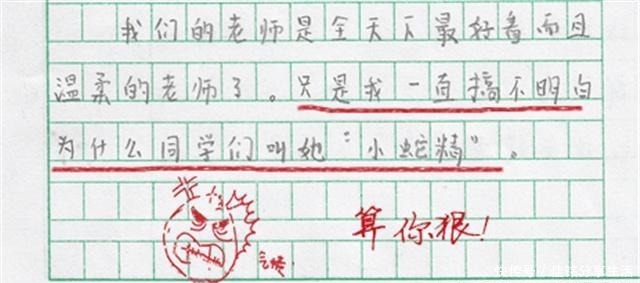 我们的老师是全天下最好看而且
温柔的老师了。只是我一直搞不明白
为什么同学们叫她“小蛇精”。
算你狠！